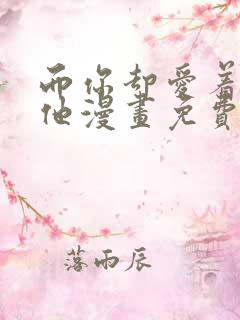 而你却愛着
他漫畫免費
落雨辰